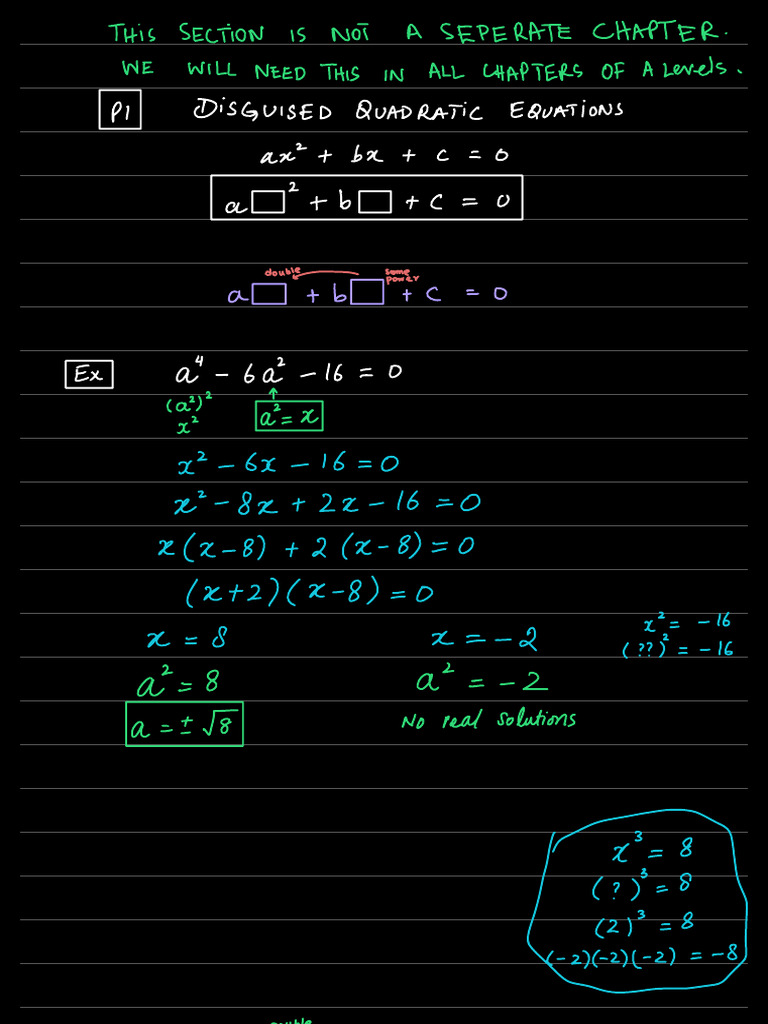 THIS SECTION IS NOT A SEPERATE CHAPTER.
WE WILL NEED THIS IN ALL CHAPTERS OF A Levels.
P1 DISGUISED QUADRATIC EQUATIONS
ax² + bx + c = 0
a□² + b□ + c = 0
double some power
a□ + b□ + c = 0
Ex a⁴ - 6a² - 16 = 0
(a²)² ↑
x² a² = x
x² - 6x - 16 = 0
x² - 8x + 2x - 16 = 0
x(x-8) + 2(x-8) = 0
(x+2)(x-8) = 0
x = 8 x = -2 x² = -16
(??)² = -16
a² = 8 a² = -2
a = ±√8 No real solutions
x³ = 8
(?)³ = 8
(2)³ = 8
(-2)(-2)(-2) = -8
double